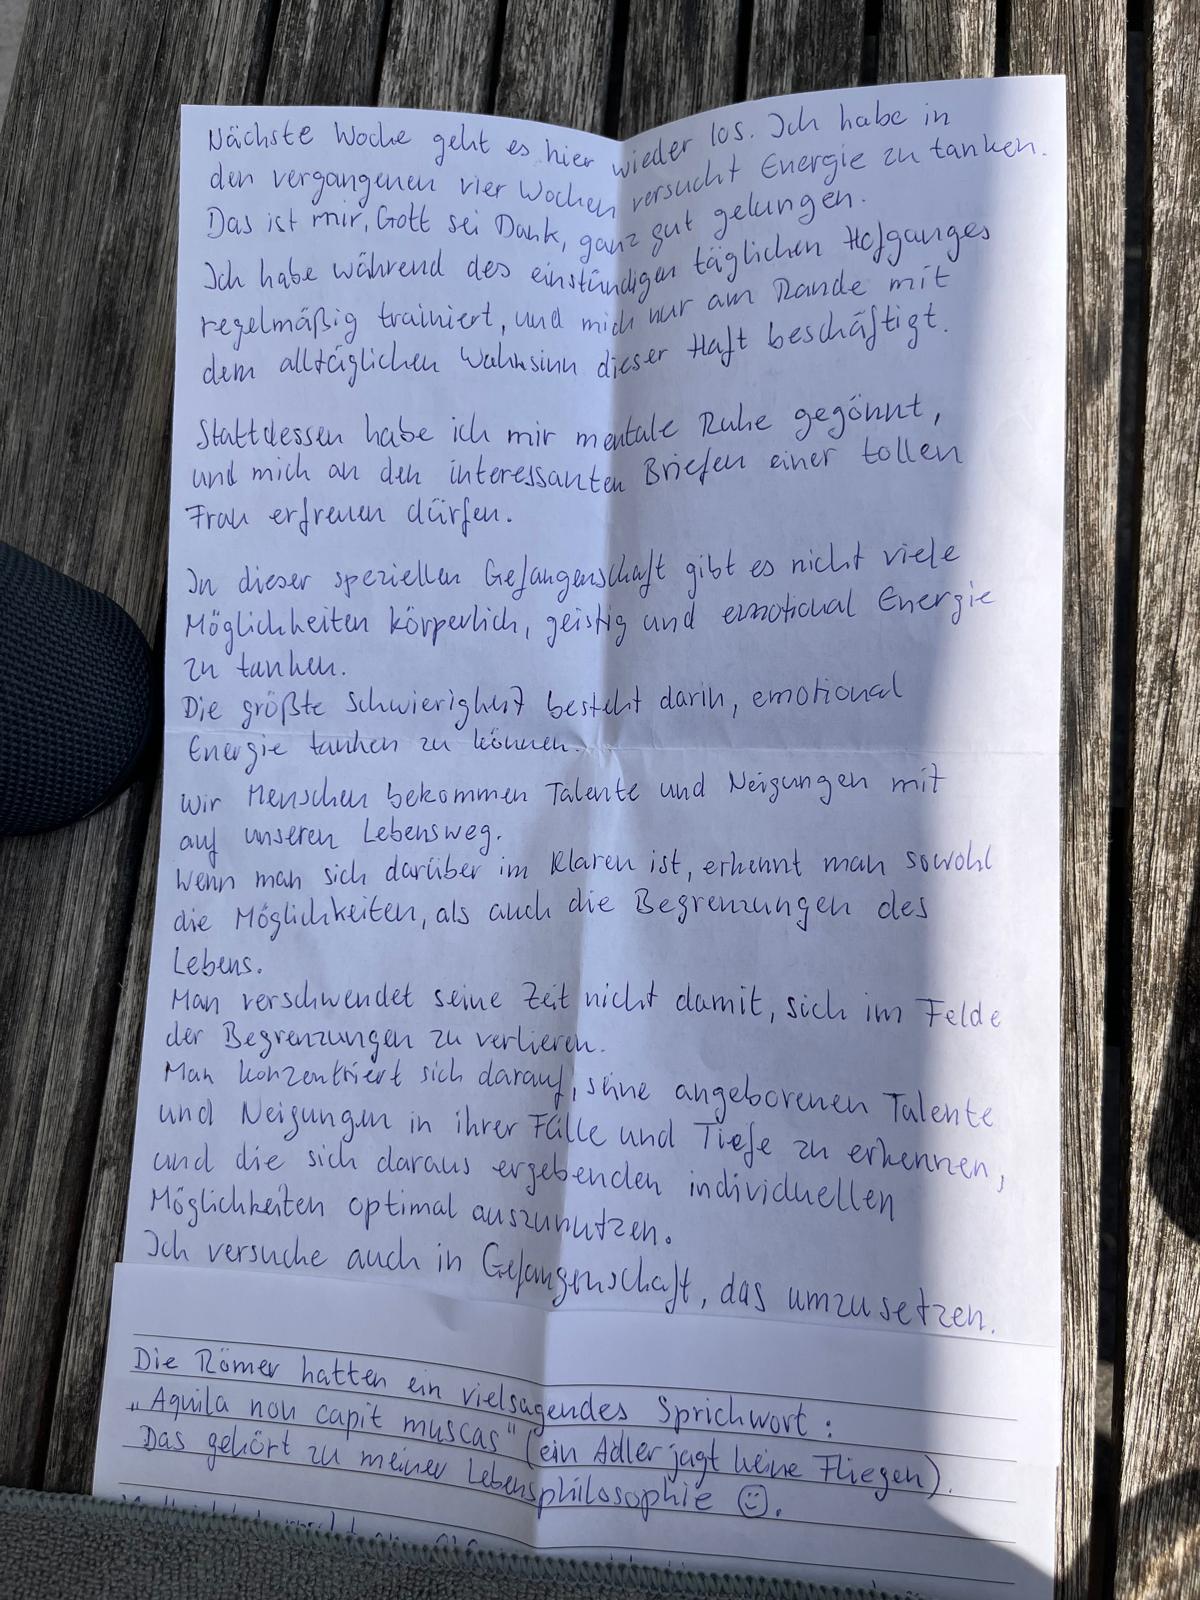 Nächste Woche geht es hier wieder los. Ich habe in
den vergangenen vier Wochen versucht Energie zu tanken.
Das ist mir, Gott sei Dank, ganz gut gelungen.
Ich habe während des einstündigen täglichen Hofganges
regelmäßig trainiert, und mich nur am Rande mit
dem alltäglichen Wahnsinn dieser Haft beschäftigt.
Stattdessen habe ich mir mentale Ruhe gegönnt,
und mich an den interessanten Briefen einer tollen
Frau erfreuen dürfen.
In dieser speziellen Gefangenschaft gibt es nicht viele
Möglichkeiten körperlich, geistig und emotional Energie
zu tanken.
Die größte Schwierigkeit besteht darin, emotional
Energie tanken zu können.
Wir Menschen bekommen Talente und Neigungen mit
auf unseren Lebensweg.
Wenn man sich darüber im Klaren ist, erkennt man sowohl
die Möglichkeiten, als auch die Begrenzungen des
Lebens.
Man verschwendet seine Zeit nicht damit, sich im Felde
der Begrenzungen zu verlieren.
Man konzentriert sich darauf, seine angeborenen Talente
und Neigungen in ihrer Fülle und Tiefe zu erkennen,
und die sich daraus ergebenden individuellen
Möglichkeiten optimal auszunutzen.
Ich versuche auch in Gefangenschaft, das umzusetzen.
Die Römer hatten ein vielsagendes Sprichwort:
„Aquila non capit muscas" (ein Adler jagt keine Fliegen).
Das gehört zu meiner Lebensphilosophie ☺.